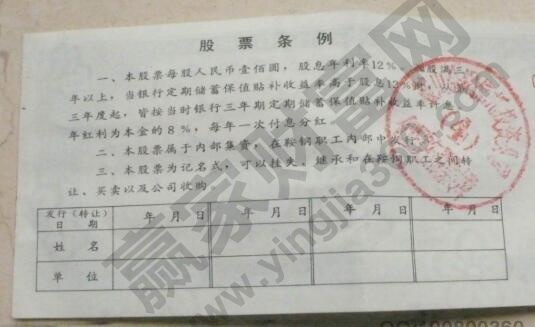 股票条例
一、本股票每股人民币壹佰圆，股息年利率12%。
年以上，当银行定期储蓄保值贴补收益率高于股息12%
年度起，皆按当时银行三年期定期储蓄保值贴补收益率计
年红利为本金的8%，每年一次付息分红。
二、本股票属于内部集资，在鞍钢职工内部中发行。
三、本股票为记名式，可以挂失、继承和在鞍钢职工之间转
让、买卖以及公司收购
发行(转让)日期 年月日 年月日 年月日 年月日
姓名
单位
赢家财富网
www.yingjia360.com